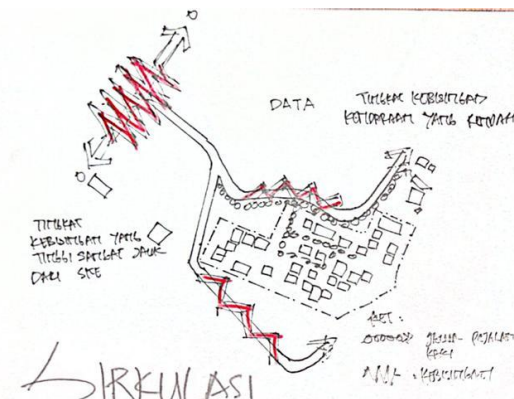 DATA
TINGKAT KEBISINGAN
KENDARAAN YANG RENDAH
TINGKAT
KEBISINGAN YANG
TINGGI SANGAT JAUH
DARI SITE
KET :
JALUR PEJALAN
KAKI
: KEBISINGAN
SIRKULASI